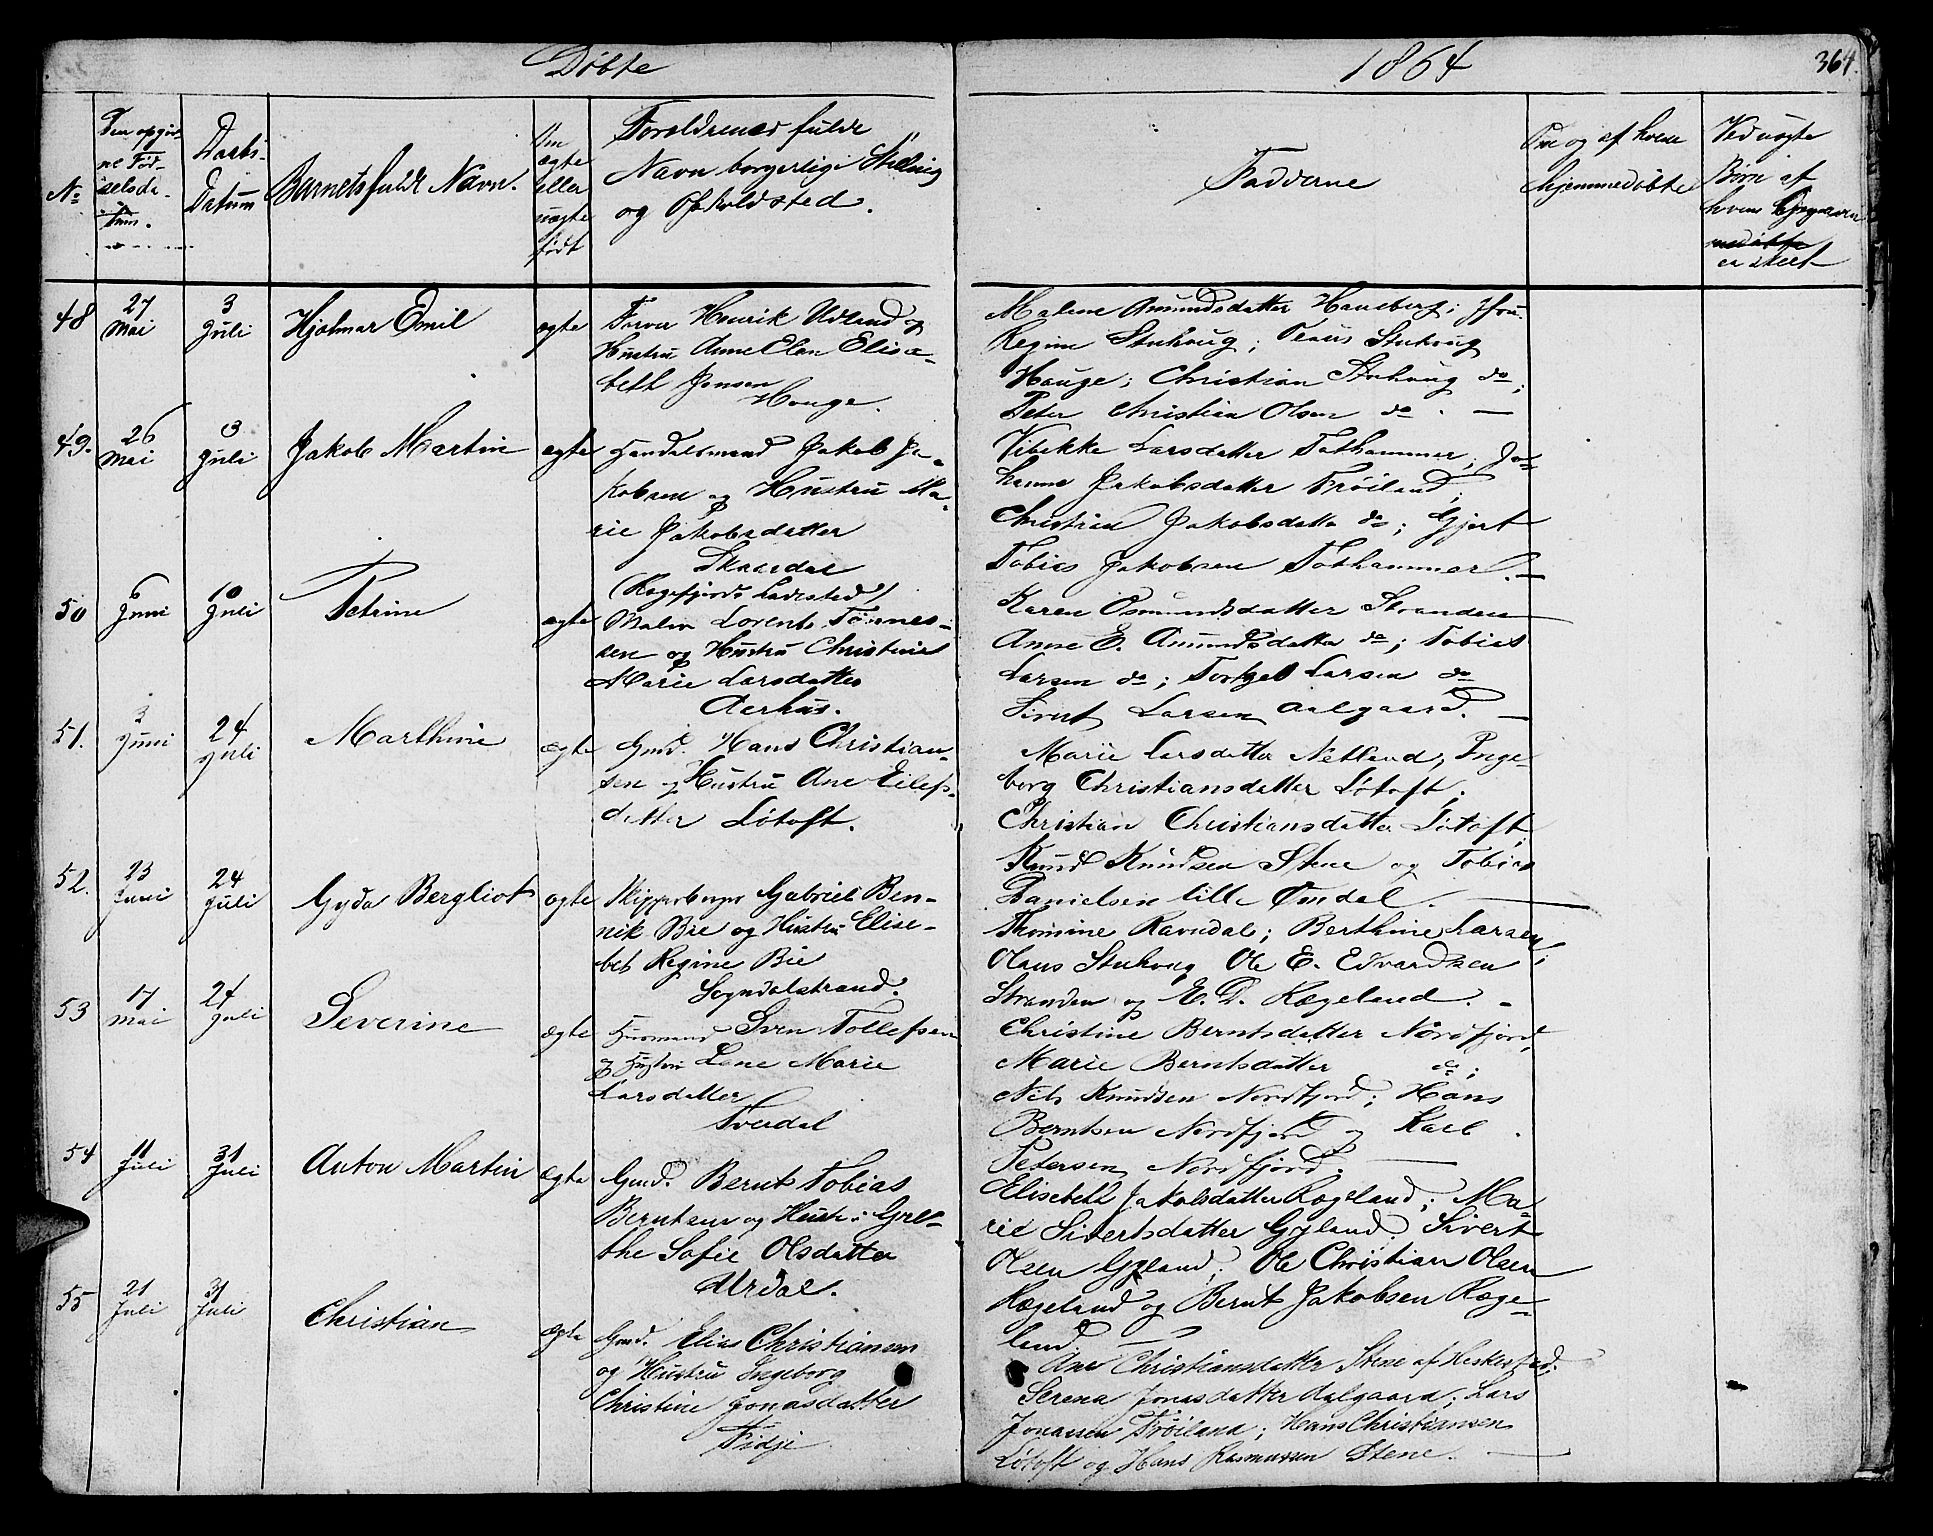 Døbte
1864
364.
No
Den opgiv-
ne Fød-
selsda-
tum.
Daabs-
Datum
Barnets fulde Navn.
Om
ægte
eller
uægte
født
Forældrenes fulde
Navn borgerlige Stilling
og Opholdssted.
Fadderne
Om og af hvem
hjemmedøbte
Ved uægte
Børn af
hvem Opgaven
er skeet
48
27
Mai
3
Juli
Hjalmar Emil
ægte
Farver Henrik Udland og
Hustru Anne Elen Elisa-
beth Jensen
Hauge.
Malene Amundsdatter Haneberg; Jfru.
Regine Stuhoug; Claus Stuhoug
Hauge; Christian Stuhoug do;
Peter Christian Olsen do. —
49.
26
Mai
3
Juli
Jakob Martin
ægte
Handelsmand Jakob Ja-
kobsen og Hustru Ma-
rie Jakobsdatter
Skaardal
(Rægefjords Ladested)
Vibekke Larsdatter Tothammer; Jo-
hanne Jakobsdatter Frøiland;
Christine Jakobsdatter do; Gjert
Tobias Jakobsen Tothammer. —
50
6
Juni
10
Juli
Petrine
ægte
Maler Lorents Tønnes-
sen og Hustru Christine
Marie Larsdatter
Aarhus.
Karen Osmundsdatter Stranden
Anne E. Amundsdatter do; Tobias
Larsen do; Torkel Larsen do
Sivert Larsen Aalgaard. —
51.
3
Juni
24
Juli
Marthine
ægte
Gmd. Hans Christian-
sen og Hustru Ane Eilefs-
datter Løtoft.
Marie Larsdatter Netland, Inge-
borg Christiansdatter Løtoft;
Christian Christiansdatter Løtoft,
Knud Knudsen Stene og Tobias
Danielsen lille Omdal. —
52.
23
Juni
24
Juli
Gyda Bergliot
ægte
Skipperborger Gabriel Ben-
nik Bie og Hustru Elise-
bet Regine Bie
Sogndalstrand.
Thomine Ravndal; Berthine Larsen;
Olaus Stuhoug, Ole E. Edvardsen
Stranden og E. D. Rægeland. -
53
17
Mai
24
Juli
Severine
ægte
Huusmand Sven Tollefsen
og Hustru Lene Marie
Larsdatter
Sverdal
Christine Berntsdatter Nordfjord,
Marie Berntsdatter do;
Nils Knudsen Nordfjord; Hans
Berntsen Nordfjord og Karl
Petersen Nordfjord. —
54
11
Juli
31
Juli
Anton Martin
ægte
Gmd. Bernt Tobias
Berntsen og Hustru Gre-
the Sofie Olsdatter
Urdal.
Elisebeth Jakobsdatter Rægeland; Ma-
rie Sivertsdatter Gyland, Sivert
Olsen Gyland; Ole Christian Olsen
Rægeland og Bernt Jakobsen Ræge-
land. —
55
21
Juli
31
Juli
Christian
ægte
Gmd. Elias Christiansen
og Hustru Ingeborg
Christine Jonasdatter
Fidje
Ane Christiansdatter Stene af Heskestad;
Serena Jonasdatter Aalgaard; Lars
Jonassen Frøiland; Hans Christiansen
Løtoft og Hans Rasmusen Stene. —